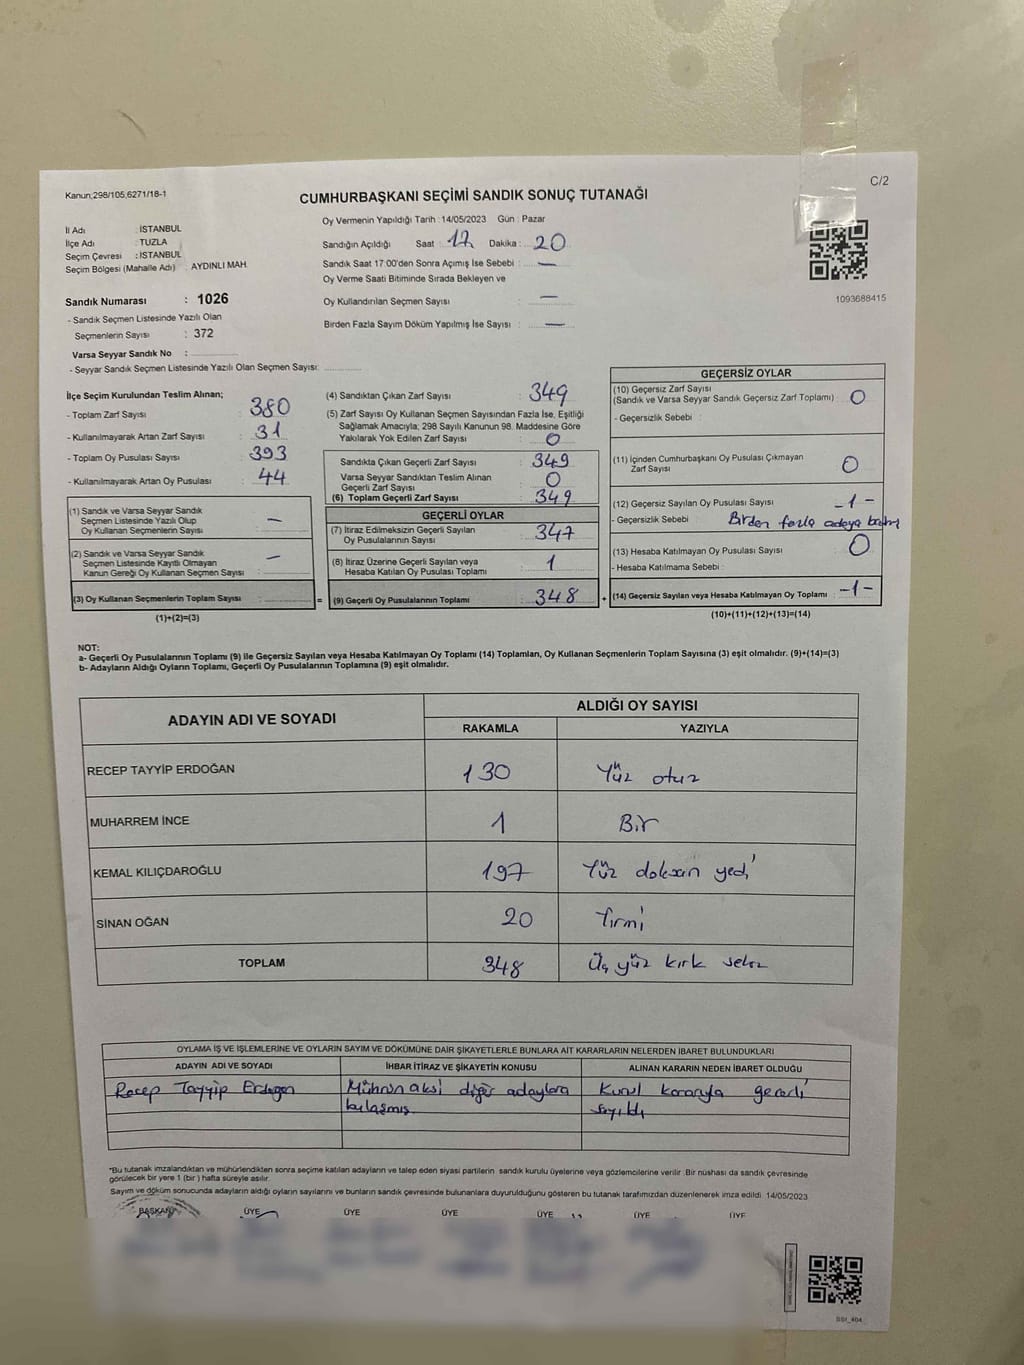 Kanun;298/105,6271/18-1
C/2
CUMHURBAŞKANI SEÇİMİ SANDIK SONUÇ TUTANAĞI
Oy Vermenin Yapıldığı Tarih :14/05/2023 Gün : Pazar
İl Adı : İSTANBUL
İlçe Adı : TUZLA
Seçim Çevresi : İSTANBUL
Seçim Bölgesi (Mahalle Adı) : AYDINLI MAH.
Sandığın Açıldığı Saat : 17 Dakika : 20
Sandık Saat 17:00'den Sonra Açımış İse Sebebi : —
Oy Verme Saati Bitiminde Sırada Bekleyen ve
Oy Kullandırılan Seçmen Sayısı : —
Birden Fazla Sayım Döküm Yapılmış İse Sayısı : —
1093688415
Sandık Numarası : 1026
- Sandık Seçmen Listesinde Yazılı Olan
Seçmenlerin Sayısı : 372
Varsa Seyyar Sandık No :
- Seyyar Sandık Seçmen Listesinde Yazılı Olan Seçmen Sayısı:
İlçe Seçim Kurulundan Teslim Alınan;
- Toplam Zarf Sayısı : 380
- Kullanılmayarak Artan Zarf Sayısı : 31
- Toplam Oy Pusulası Sayısı : 393
- Kullanılmayarak Artan Oy Pusulası : 44
(1) Sandık ve Varsa Seyyar Sandık
Seçmen Listesinde Yazılı Olup
Oy Kullanan Seçmenlerin Sayısı : —
(2) Sandık ve Varsa Seyyar Sandık
Seçmen Listesinde Kayıtlı Olmayan
Kanun Gereği Oy Kullanan Seçmen Sayısı : —
(3) Oy Kullanan Seçmenlerin Toplam Sayısı : =
(1)+(2)=(3)
(4) Sandıktan Çıkan Zarf Sayısı : 349
(5) Zarf Sayısı Oy Kullanan Seçmen Sayısından Fazla İse, Eşitliği
Sağlamak Amacıyla; 298 Sayılı Kanunun 98. Maddesine Göre
Yakılarak Yok Edilen Zarf Sayısı : 0
Sandıkta Çıkan Geçerli Zarf Sayısı : 349
Varsa Seyyar Sandıktan Teslim Alınan
Geçerli Zarf Sayısı : 0
(6) Toplam Geçerli Zarf Sayısı : 349
GEÇERLİ OYLAR
(7) İtiraz Edilmeksizin Geçerli Sayılan
Oy Pusulalarının Sayısı : 347
(8) İtiraz Üzerine Geçerli Sayılan veya
Hesaba Katılan Oy Pusulası Toplamı : 1
(9) Geçerli Oy Pusulalarının Toplamı : 348 +
GEÇERSİZ OYLAR
(10) Geçersiz Zarf Sayısı
(Sandık ve Varsa Seyyar Sandık Geçersiz Zarf Toplamı) : 0
- Geçersizlik Sebebi :
(11) İçinden Cumhurbaşkanı Oy Pusulası Çıkmayan
Zarf Sayısı : 0
(12) Geçersiz Sayılan Oy Pusulası Sayısı : -1-
- Geçersizlik Sebebi : Birden fazla adaya
(13) Hesaba Katılmayan Oy Pusulası Sayısı : 0
- Hesaba Katılmama Sebebi :
(14) Geçersiz Sayılan veya Hesaba Katılmayan Oy Toplamı : -1-
(10)+(11)+(12)+(13)=(14)
NOT:
a- Geçerli Oy Pusulalarının Toplamı (9) ile Geçersiz Sayılan veya Hesaba Katılmayan Oy Toplamı (14) Toplamları, Oy Kullanan Seçmenlerin Toplam Sayısına (3) eşit olmalıdır. (9)+(14)=(3)
b- Adayların Aldığı Oyların Toplamı, Geçerli Oy Pusulalarının Toplamına (9) eşit olmalıdır.
ADAYIN ADI VE SOYADI
ALDIĞI OY SAYISI
RAKAMLA YAZIYLA
RECEP TAYYİP ERDOĞAN 130 Yüz otuz
MUHARREM İNCE 1 Bir
KEMAL KILIÇDAROĞLU 197 Yüz doksan yedi
SİNAN OĞAN 20 Yirmi
TOPLAM 348 Üç yüz kırk sekiz
OYLAMA İŞ VE İŞLEMLERİNE VE OYLARIN SAYIM VE DÖKÜMÜNE DAİR ŞİKAYETLERLE BUNLARA AİT KARARLARIN NELERDEN İBARET BULUNDUKLARI
ADAYIN ADI VE SOYADI İHBAR İTİRAZ VE ŞİKAYETİN KONUSU ALINAN KARARIN NEDEN İBARET OLDUĞU
Recep Tayyip Erdogan Mührün aksi diğer adaylara Kurul kararıyla geçerli
bulaşmış sayıldı
*Bu tutanak imzalandıktan ve mühürlendikten sonra seçime katılan adayların ve talep eden siyasi partilerin sandık kurulu üyelerine veya gözlemcilerine verilir .Bir nüshası da sandık çevresinde
görülecek bir yere 1 (bir ) hafta süreyle asılır.
Sayım ve döküm sonucunda adayların aldığı oyların sayılarını ve bunların sandık çevresinde bulunanlara duyurulduğunu gösteren bu tutanak tarafımızdan düzenlenerek imza edildi. 14/05/2023
BAŞKAN ÜYE ÜYE ÜYE ÜYE ÜYE ÜYE
SSI_404